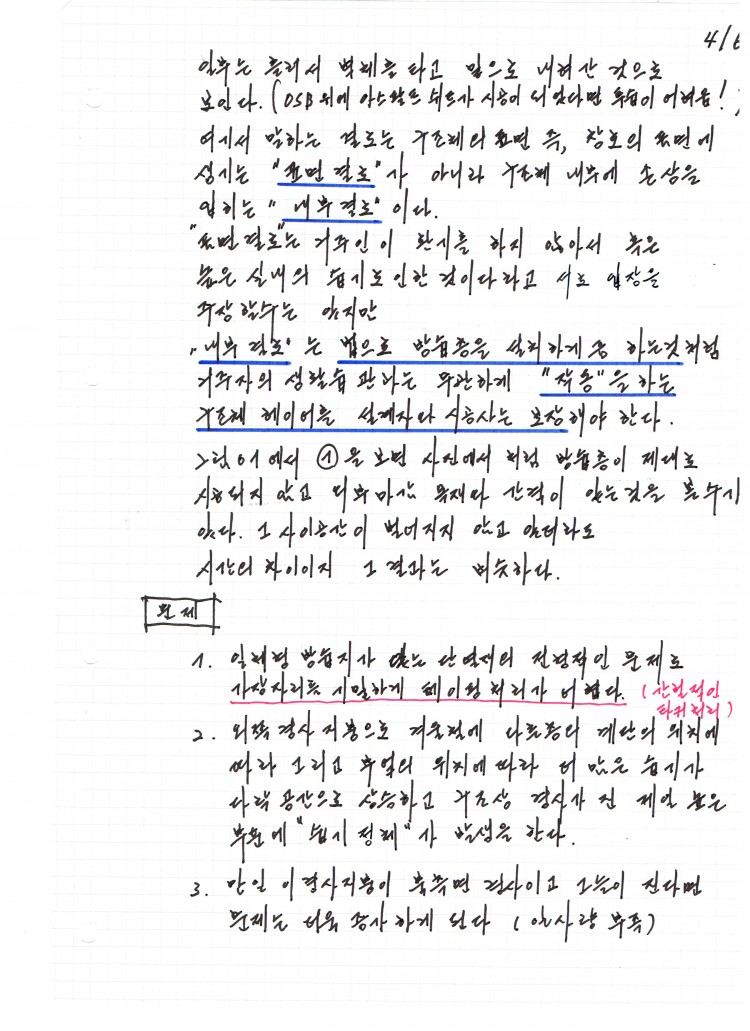 4/6
일부는 흘러서 벽체를 타고 밑으로 내려간 것으로
보인다. (OSB 위에 아스팔트 쉬트가 시공이 되었다면 투습이 어려움!)
여기서 말하는 결로는 구조체의 표면 즉, 창호의 표면에
생기는 "표면결로"가 아니라 구조체 내부에 손상을
입히는 "내부결로"이다.
"표면결로"는 거주인이 환기를 하지 않아서 혹은
높은 실내의 습기로 인한 것이다라고 서로 입장을
주장할수는 있지만
"내부결로"는 법으로 방습층을 설치하게 끔 하는것처럼
거주자의 생활습관과는 무관하게 "작동"을 하는
구조체 레이어를 설계자와 시공사는 보장해야 한다.
그림 01에서 ①을 보면 사진에서 처럼 방습층이 제대로
시공되지 않고 외부마감 목재와 간격이 있는것을 볼수가
있다. 그 사이공간이 벌어지지 않고 있더라도
시간의 차이이지 그 결과는 비슷하다.
문제
1. 일체형 방습지가 있는 단열재의 전형적인 문제로
가장자리를 기밀하게 테이핑처리가 어렵다. (산발적인
타카처리)
2. 외쪽 경사 지붕으로 겨울철에 다락층의 계단의 위치에
따라 그리고 후열의 위치에 따라 더 많은 습기가
다락 공간으로 상승하고 구조상 경사가 진 제일 높은
부분에 "습기 정체"가 발생을 한다.
3. 만일 이경사지붕이 북쪽면 경사이고 그늘이 진다면
문제는 더욱 증가 하게 된다 (일사량 부족)